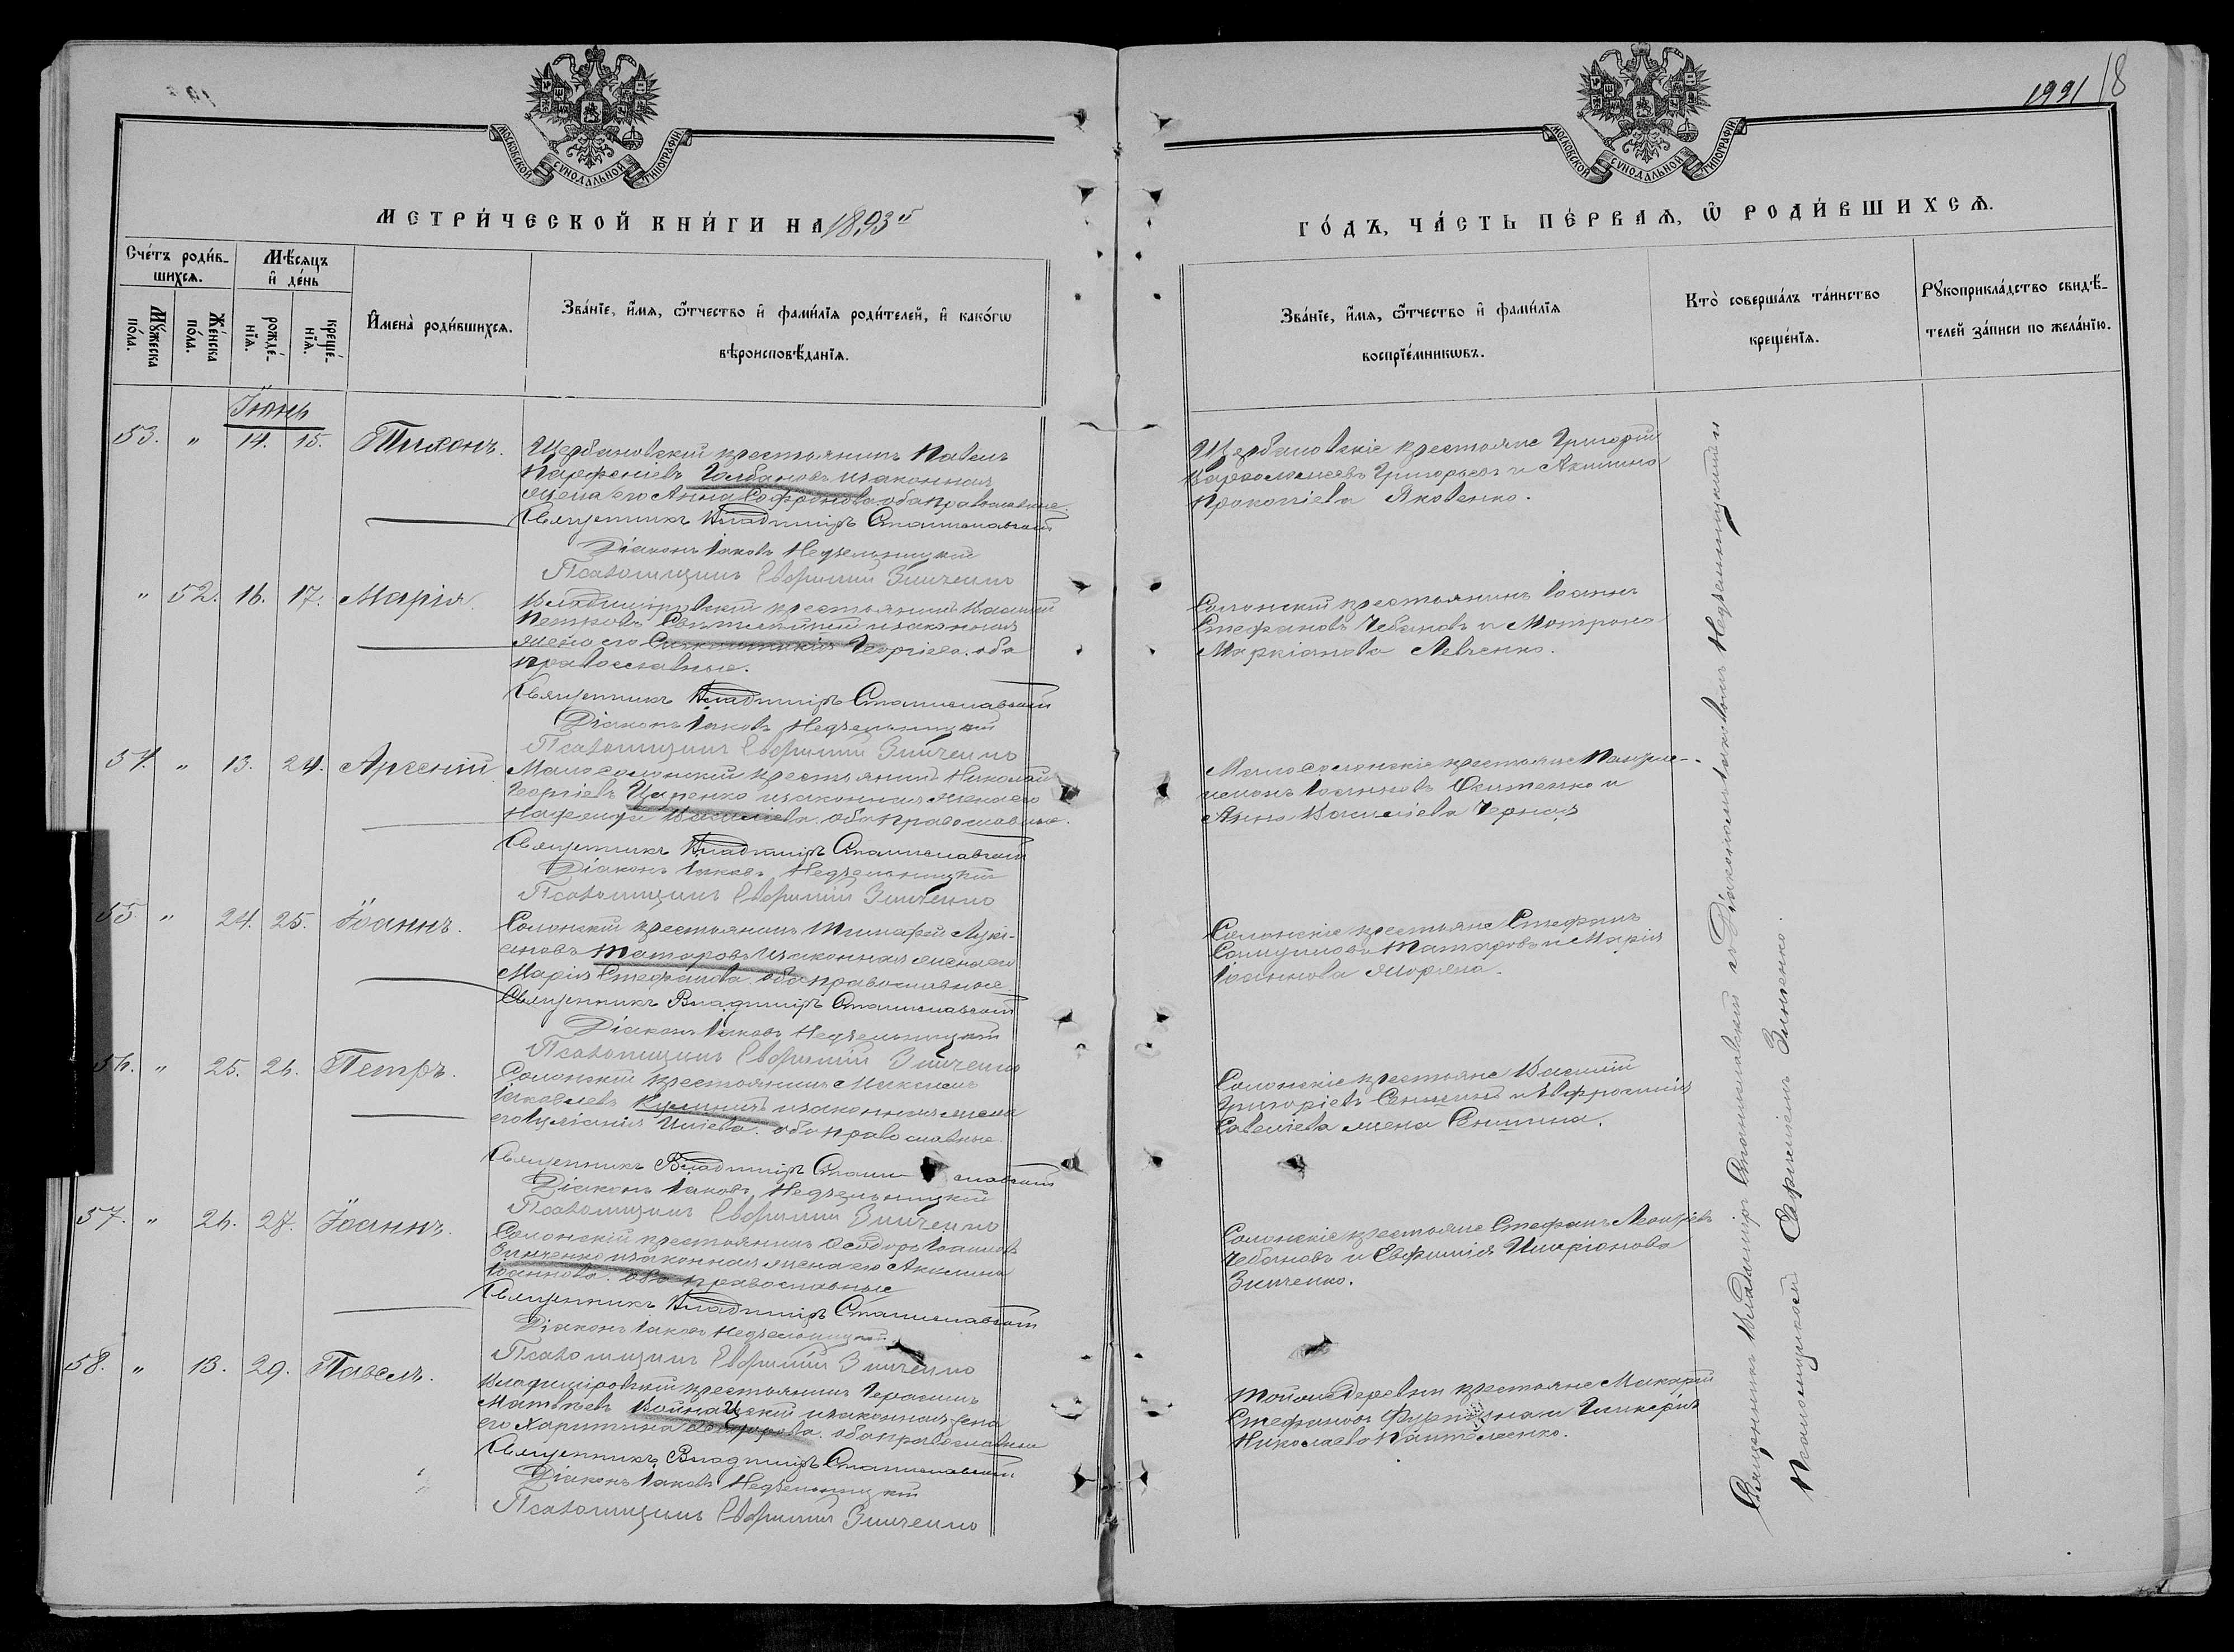 1991 18
МОСКОВСКОЙ СѴНОДАЛЬНОЙ ТИПОГРАФІИ
МОСКОВСКОЙ СѴНОДАЛЬНОЙ ТИПОГРАФІИ
МЕТРИ́ЧЕСКОЙ КНИ́ГИ НА 1893й
ГО́ДЪ, ЧА́СТЬ ПЕ́РВАѦ, Ѡ҆ РОДИ́ВШИХСѦ.
Сче́тъ роди́в-
шихсѧ.
Мꙋ́жеска по́ла.
Же́нска по́ла.
Мѣ́сѧцъ
и҆ де́нь
рожде́-
нїѧ.
креще́-
нїѧ.
И҆мена̀ роди́вшихсѧ.
Зва́нїе, и҆́мѧ, ѻ҆́тчество и҆ фами́лїѧ роди́телей, и҆ како́гѡ
вѣроисповѣ́данїѧ.
Зва́нїе, и҆́мѧ, ѻ҆́тчество и҆ фами́лїѧ
воспрїе́мникѡвъ.
Кто̀ соверша́лъ та́инство
креще́нїѧ.
Рꙋкоприкла́дство свидѣ́-
телей за́писи по жела́нїю.
Іюнь
53. " 14. 15. Тихонъ.
Щербановскій крестьянинъ Павелъ
Парѳеніевъ Голбановъ и законная
жена его Анна Софронова оба православные.
Священникъ Владиміръ Станиславскій
Діаконъ Іаковъ Недзельницкій
Псаломщикъ Евфимій Зинченко
Щербановскіе крестьяне Григорій
Варѳоломеевъ Григорьевъ и Акилина
Прокопіева Яковенко.
" 52. 16. 17. Марія.
Владиміровскій крестьянинъ Василій
Петровъ и законная
жена его Георгіева. оба
православные.
Священникъ Владиміръ Станиславскій
Діаконъ Іаковъ Недзельницкій
Псаломщикъ Евфимій Зинченко
Солонскій крестьянинъ Іоаннъ
Стефановъ Чебановъ и Матрона
Маркіанова Левченко.
54. " 13. 24. Арсеній
Малосолонскій крестьянинъ Николай
Георгіевъ Царенко и законная жена его
Василіева. оба православные.
Священникъ Владиміръ Станиславскій
Діаконъ Іаковъ Недзельницкій
Псаломщикъ Евфимій Зинченко
Малосолонскіе крестьяне Пантеле-
имонъ Іоанновъ и
Анна Василіева Черная
55. " 24. 25. Іоаннъ.
Солонскій крестьянинъ Тимофей Лукі-
ановъ Татаровъ и законная жена его
Марія Стефанова. оба православные.
Священникъ Владиміръ Станиславскій
Діаконъ Іаковъ Недзельницкій
Псаломщикъ Евфимій Зинченко
Солонскіе крестьяне Стефанъ
Самуиловъ Татаровъ и Марія
Іоаннова
56. " 25. 26. Петръ.
Солонскій крестьянинъ Михаилъ
Іаковлевъ и законная жена
его Іуліанія Иліева. оба православные.
Священникъ Владиміръ Станиславскій
Діаконъ Іаковъ Недзельницкій
Псаломщикъ Евфимій Зинченко
Солонскіе крестьяне Василій
Григоріевъ Сенинъ и Евфросинія
Савеліева жена Сенина.
57. " 26. 27. Іоаннъ.
Солонскій крестьянинъ Ѳеодоръ Іоанновъ
Зинченко и законная жена его Акилина
Іоаннова. оба православные
Священникъ Владиміръ Станиславскій
Діаконъ Іаковъ Недзельницкій
Псаломщикъ Евфимій Зинченко
Солонскіе крестьяне Стефанъ Леонтіевъ
Чебановъ и Евфимія Иларіонова
Зинченко.
58. " 13. 29. Павелъ.
Владиміровскій крестьянинъ Герасимъ
Матвѣевъ Войнацкій и законная жена
его Харитина Ѳеодорова. оба православные
Священникъ Владиміръ Станиславскій
Діаконъ Іаковъ Недзельницкій
Псаломщикъ Евфимій Зинченко
Той же деревни крестьяне Макарій
Стефановъ и Гликерія
Николаева Пантелеенко.
Священникъ Владиміръ Станиславскій съ Діакономъ Іаковомъ Недзельницкимъ и
Псаломщикомъ Евфиміемъ Зинченко.